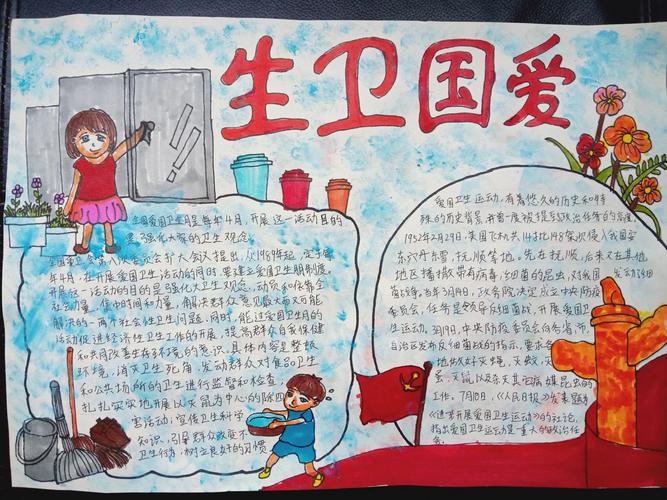 生卫国爱
全国爱国卫生月是每年4月,开展这一活动目的
是强化大家的卫生观念。
全国第二次委员会扩大会议提出,从1989年起,定于每
年4月,在开展爱国卫生活动的同时,要建立爱国卫生月制度。
开展这一活动的目的是强化大卫生观念,动员和依靠全
社会力量,集中时间和力量,解决群众意见最大而又可能
解决的一两个社会性卫生问题。同时,能过爱国卫生月的
活动促进经济性卫生工作的开展,提高群众自我保健
和共同改善生存环境的意识。具体内容是整顿
环境,消灭卫生死角,发动群众对食品卫生
和公共场所的卫生进行监督和检查
扎扎实实地开展以灭鼠为中心的除四
害活动,宣传卫生科学
知识,引导群众改变不
卫生行为,树立良好的习惯
爱国卫生运动,有着悠久的历史和特
殊的历史背景,并曾一度被提至政治任务的高度。
1952年2月29日,美国飞机共14批148架次侵入我国安
东、丹东、抚顺等地,先在抚顺,后来又在其他
地区播撒带有病毒、细菌的昆虫,对我国发动细
菌战争,当年3月14日,政务院决定成立中央防疫
委员会,任务是领导反细菌战,开展爱国卫
生运动。3月19日,中央防疫委员会向各省、市
自治区发布反细菌战的指示,要求各
地做好灭蝇、灭蚊、灭
蚤、灭鼠以及杀灭其它病媒昆虫的
工作。7月10日,《人民日报》发表题为
《进一步开展爱国卫生运动》的社论,
指出爱国卫生运动是重大的政治任
务。